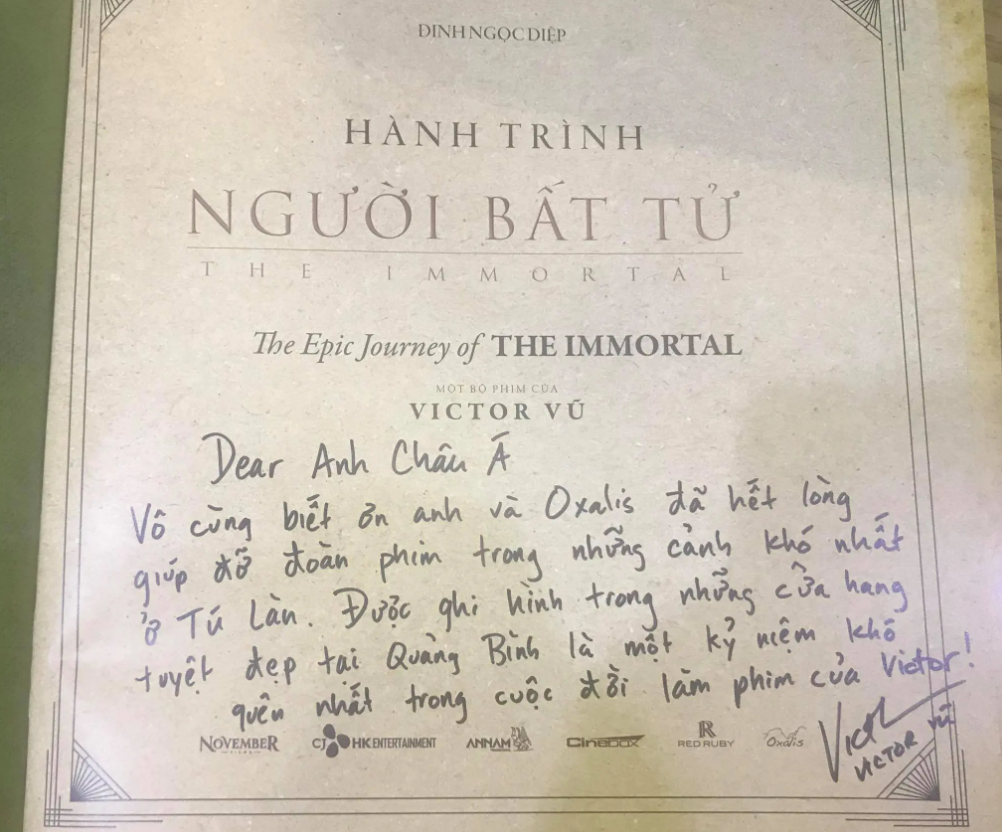 ĐINH NGỌC DIỆP
HÀNH TRÌNH
NGƯỜI BẤT TỬ
THE IMMORTAL
The Epic Journey of THE IMMORTAL
MỘT BỘ PHIM CỦA
VICTOR VŨ
Dear Anh Châu Á
Vô cùng biết ơn anh và Oxalis đã hết lòng
giúp đỡ đoàn phim trong những cảnh khó nhất
ở Tú Làn. Được ghi hình trong những cửa hang
tuyệt đẹp tại Quảng Bình là một kỷ niệm khó
quên nhất trong cuộc đời làm phim của Victor!
NOVEMBER CJ HK ENTERTAINMENT ANNAM CineBOX RED RUBY Oxalis
VICTOR VŨ